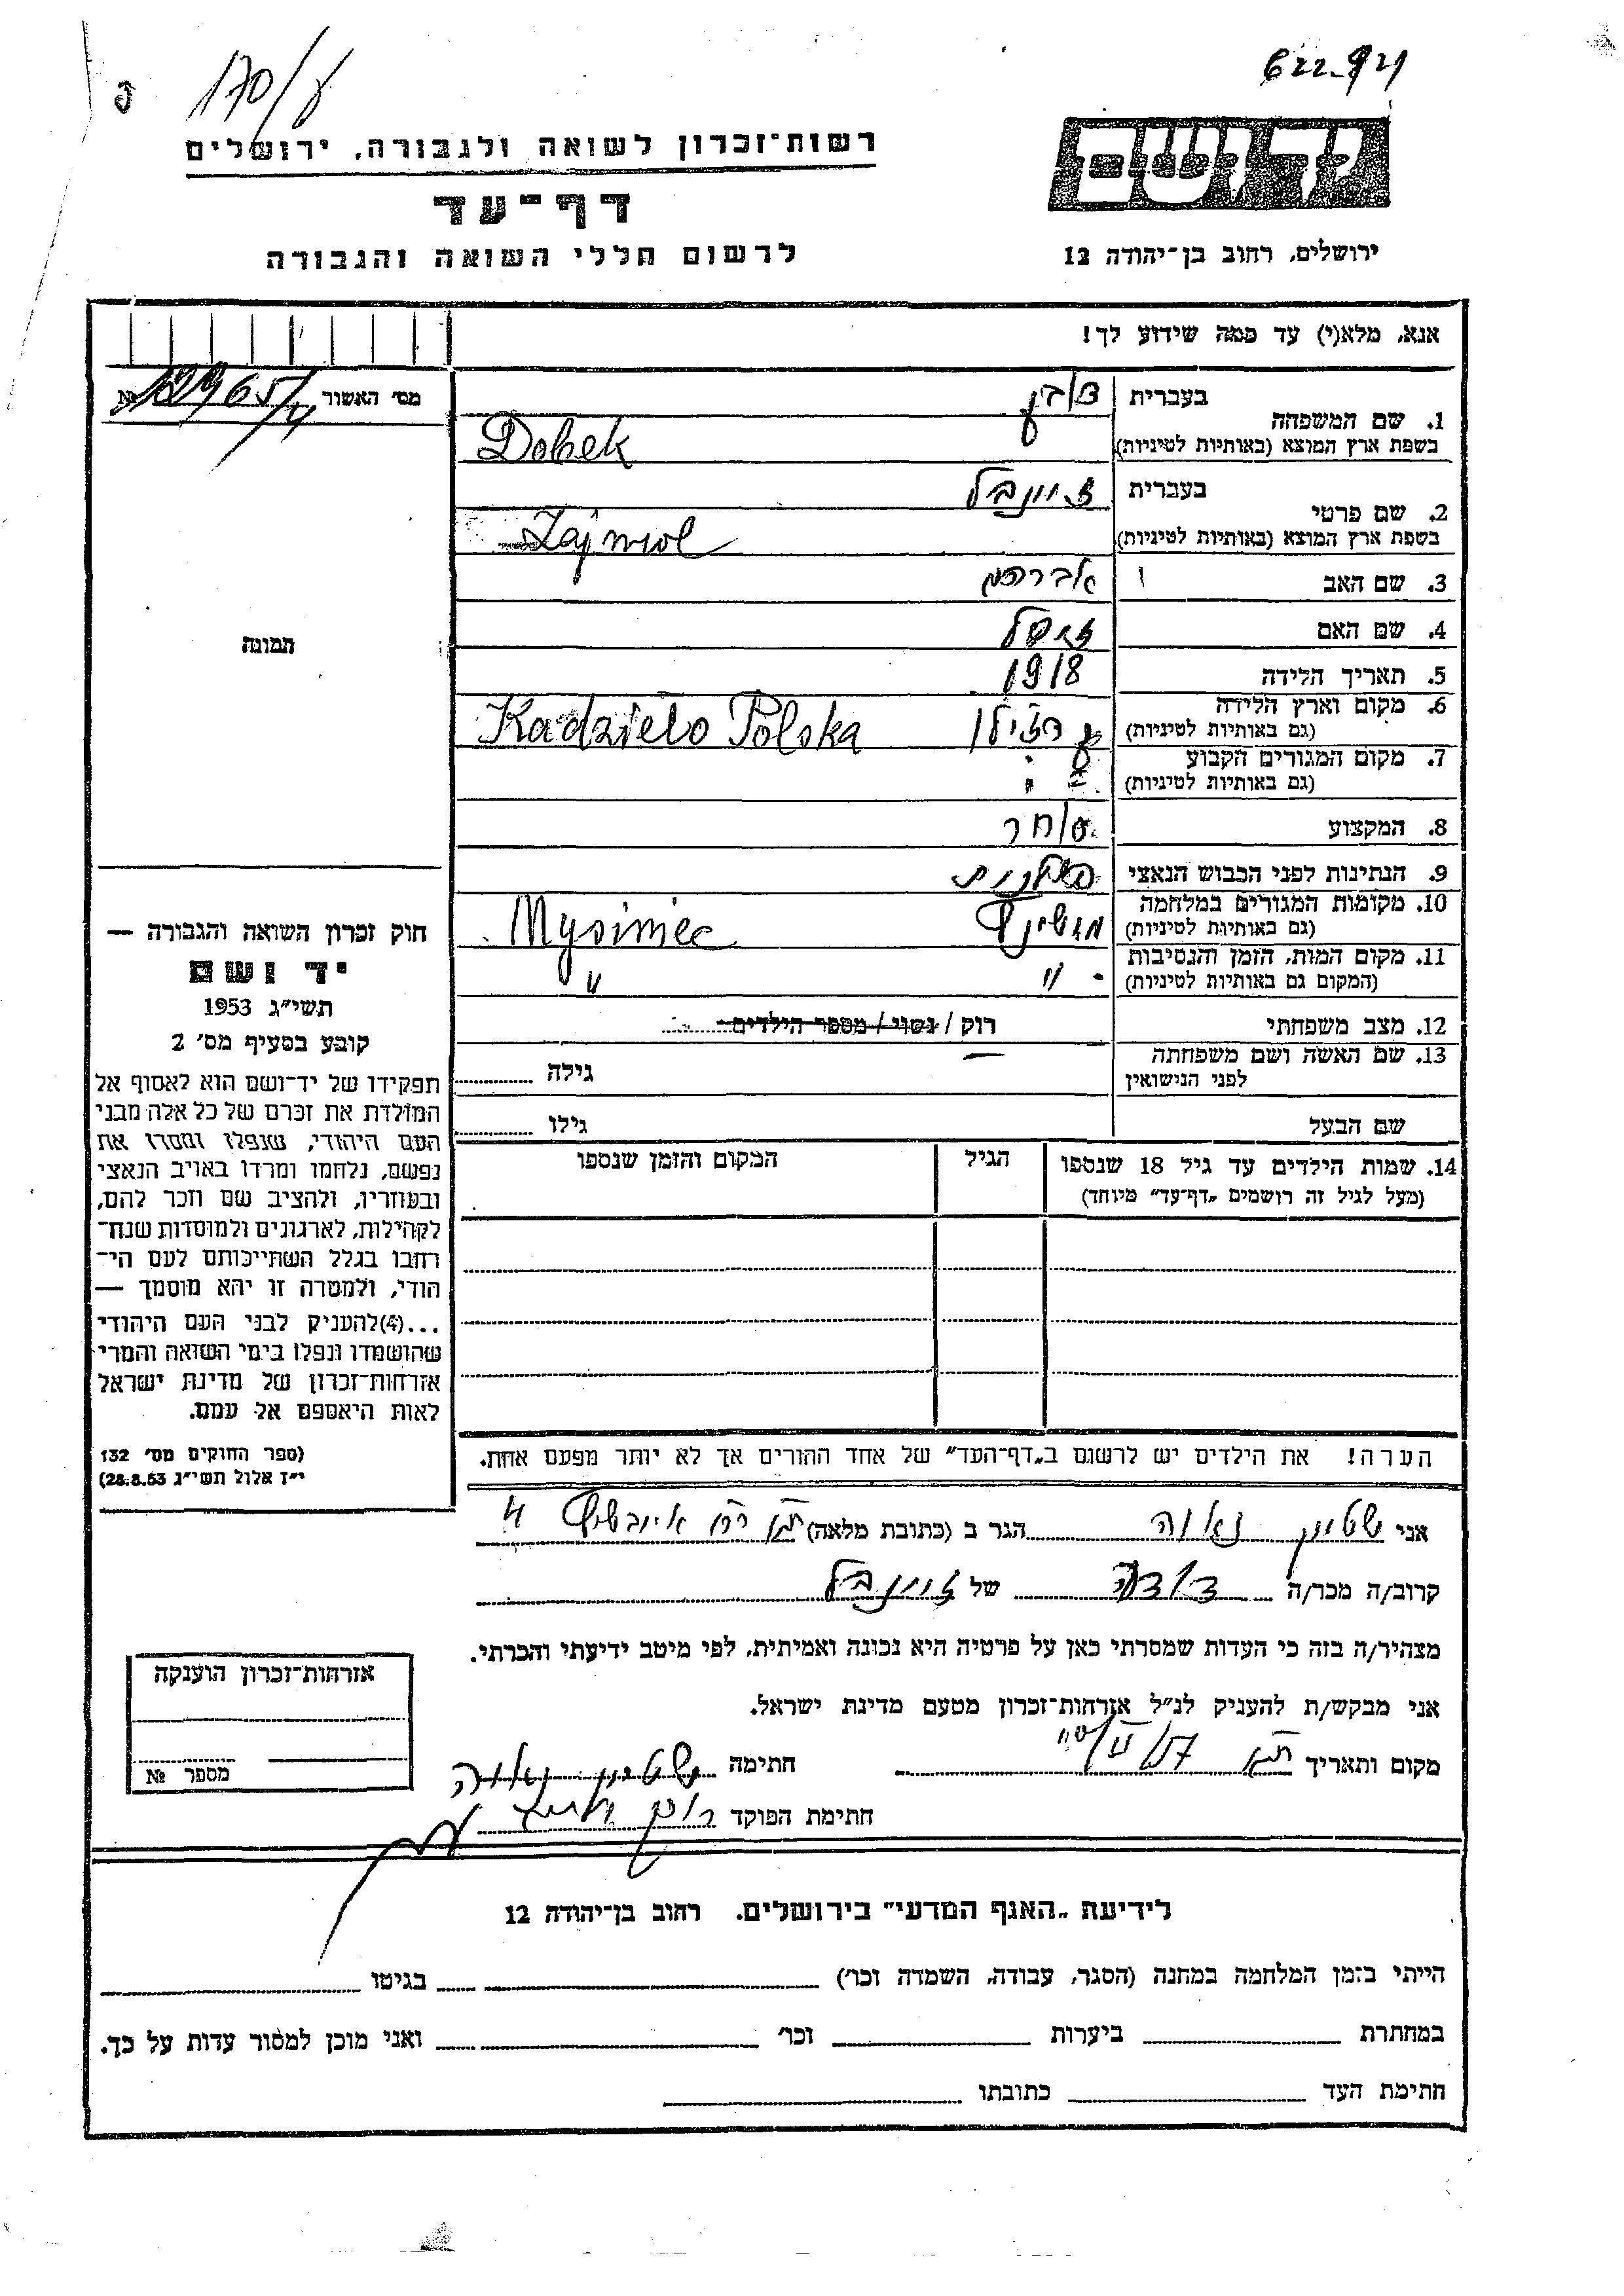 170/ע
622.94
רשות־זכרון לשואה ולגבורה, ירושלים
יד ושם
דף־עד
לרשום חללי השואה והגבורה
ירושלים, רחוב בן־יהודה 12
אנא, מלא(י) עד כמה שידוע לך!
מס׳ האשור №
1. שם המשפחה בעברית
בשפת ארץ המוצא (באותיות לטיניות) Dobek
2. שם פרטי בעברית
בשפת ארץ המוצא (באותיות לטיניות) Zajnwol
3. שם האב אברהם
4. שם האם
5. תאריך הלידה 1918
6. מקום וארץ הלידה
(גם באותיות לטיניות) Kadzielo Polska
7. מקום המגורים הקבוע
(גם באותיות לטיניות) " "
8. המקצוע סוחר
9. הנתינות לפני הכבוש הנאצי פולנית
10. מקומות המגורים במלחמה
(גם באותיות לטיניות) Mysiniec
11. מקום המות, הזמן והנסיבות
(המקום גם באותיות לטיניות) " "
12. מצב משפחתי רוק / נשוי / מספר הילדים
13. שם האשה ושם משפחתה
לפני הנישואין — גילה
שם הבעל גילו
14. שמות הילדים עד גיל 18 שנספו הגיל המקום והזמן שנספו
(מעל לגיל זה רושמים „דף־עד” מיוחד)
התמונה
חוק זכרון השואה והגבורה —
יד ושם
תשי״ג 1953
קובע בסעיף מס׳ 2
תפקידו של יד־ושם הוא לאסוף אל
המולדת את זכרם של כל אלה מבני
העם היהודי, שנפלו ומסרו את
נפשם, נלחמו ומרדו באויב הנאצי
ובעוזריו, ולהציב שם וזכר להם,
לקהילות, לארגונים ולמוסדות שנח־
רבו בגלל השתייכותם לעם הי־
הודי, ולמטרה זו יהא מוסמך —
...(4)להעניק לבני העם היהודי
שהושמדו ונפלו בימי השואה והמרי
אזרחות־זכרון של מדינת ישראל
לאות היאספם אל עמם.
(ספר החוקים מס׳ 132
י״ז אלול תשי״ג 28.8.53)
הערה! את הילדים יש לרשום ב„דף־העד” של אחד ההורים אך לא יותר מפעם אחת.
אני שטיין נאוה הגר ב (כתובת מלאה)
קרוב/ה מכר/ה דודה של
מצהיר/ה בזה כי העדות שמסרתי כאן על פרטיה היא נכונה ואמיתית, לפי מיטב ידיעתי והכרתי.
אני מבקש/ת להעניק לנ״ל אזרחות־זכרון מטעם מדינת ישראל.
מקום ותאריך חתימה שטיין נאוה
חתימת הפוקד
אזרחות־זכרון הוענקה
מספר №
לידיעת „האגף המדעי” בירושלים, רחוב בן־יהודה 12
הייתי בזמן המלחמה במחנה (הסגר, עבודה, השמדה וכו׳) בגיטו
במחתרת ביערות וכו׳ ואני מוכן למסור עדות על כך.
חתימת העד כתובתו